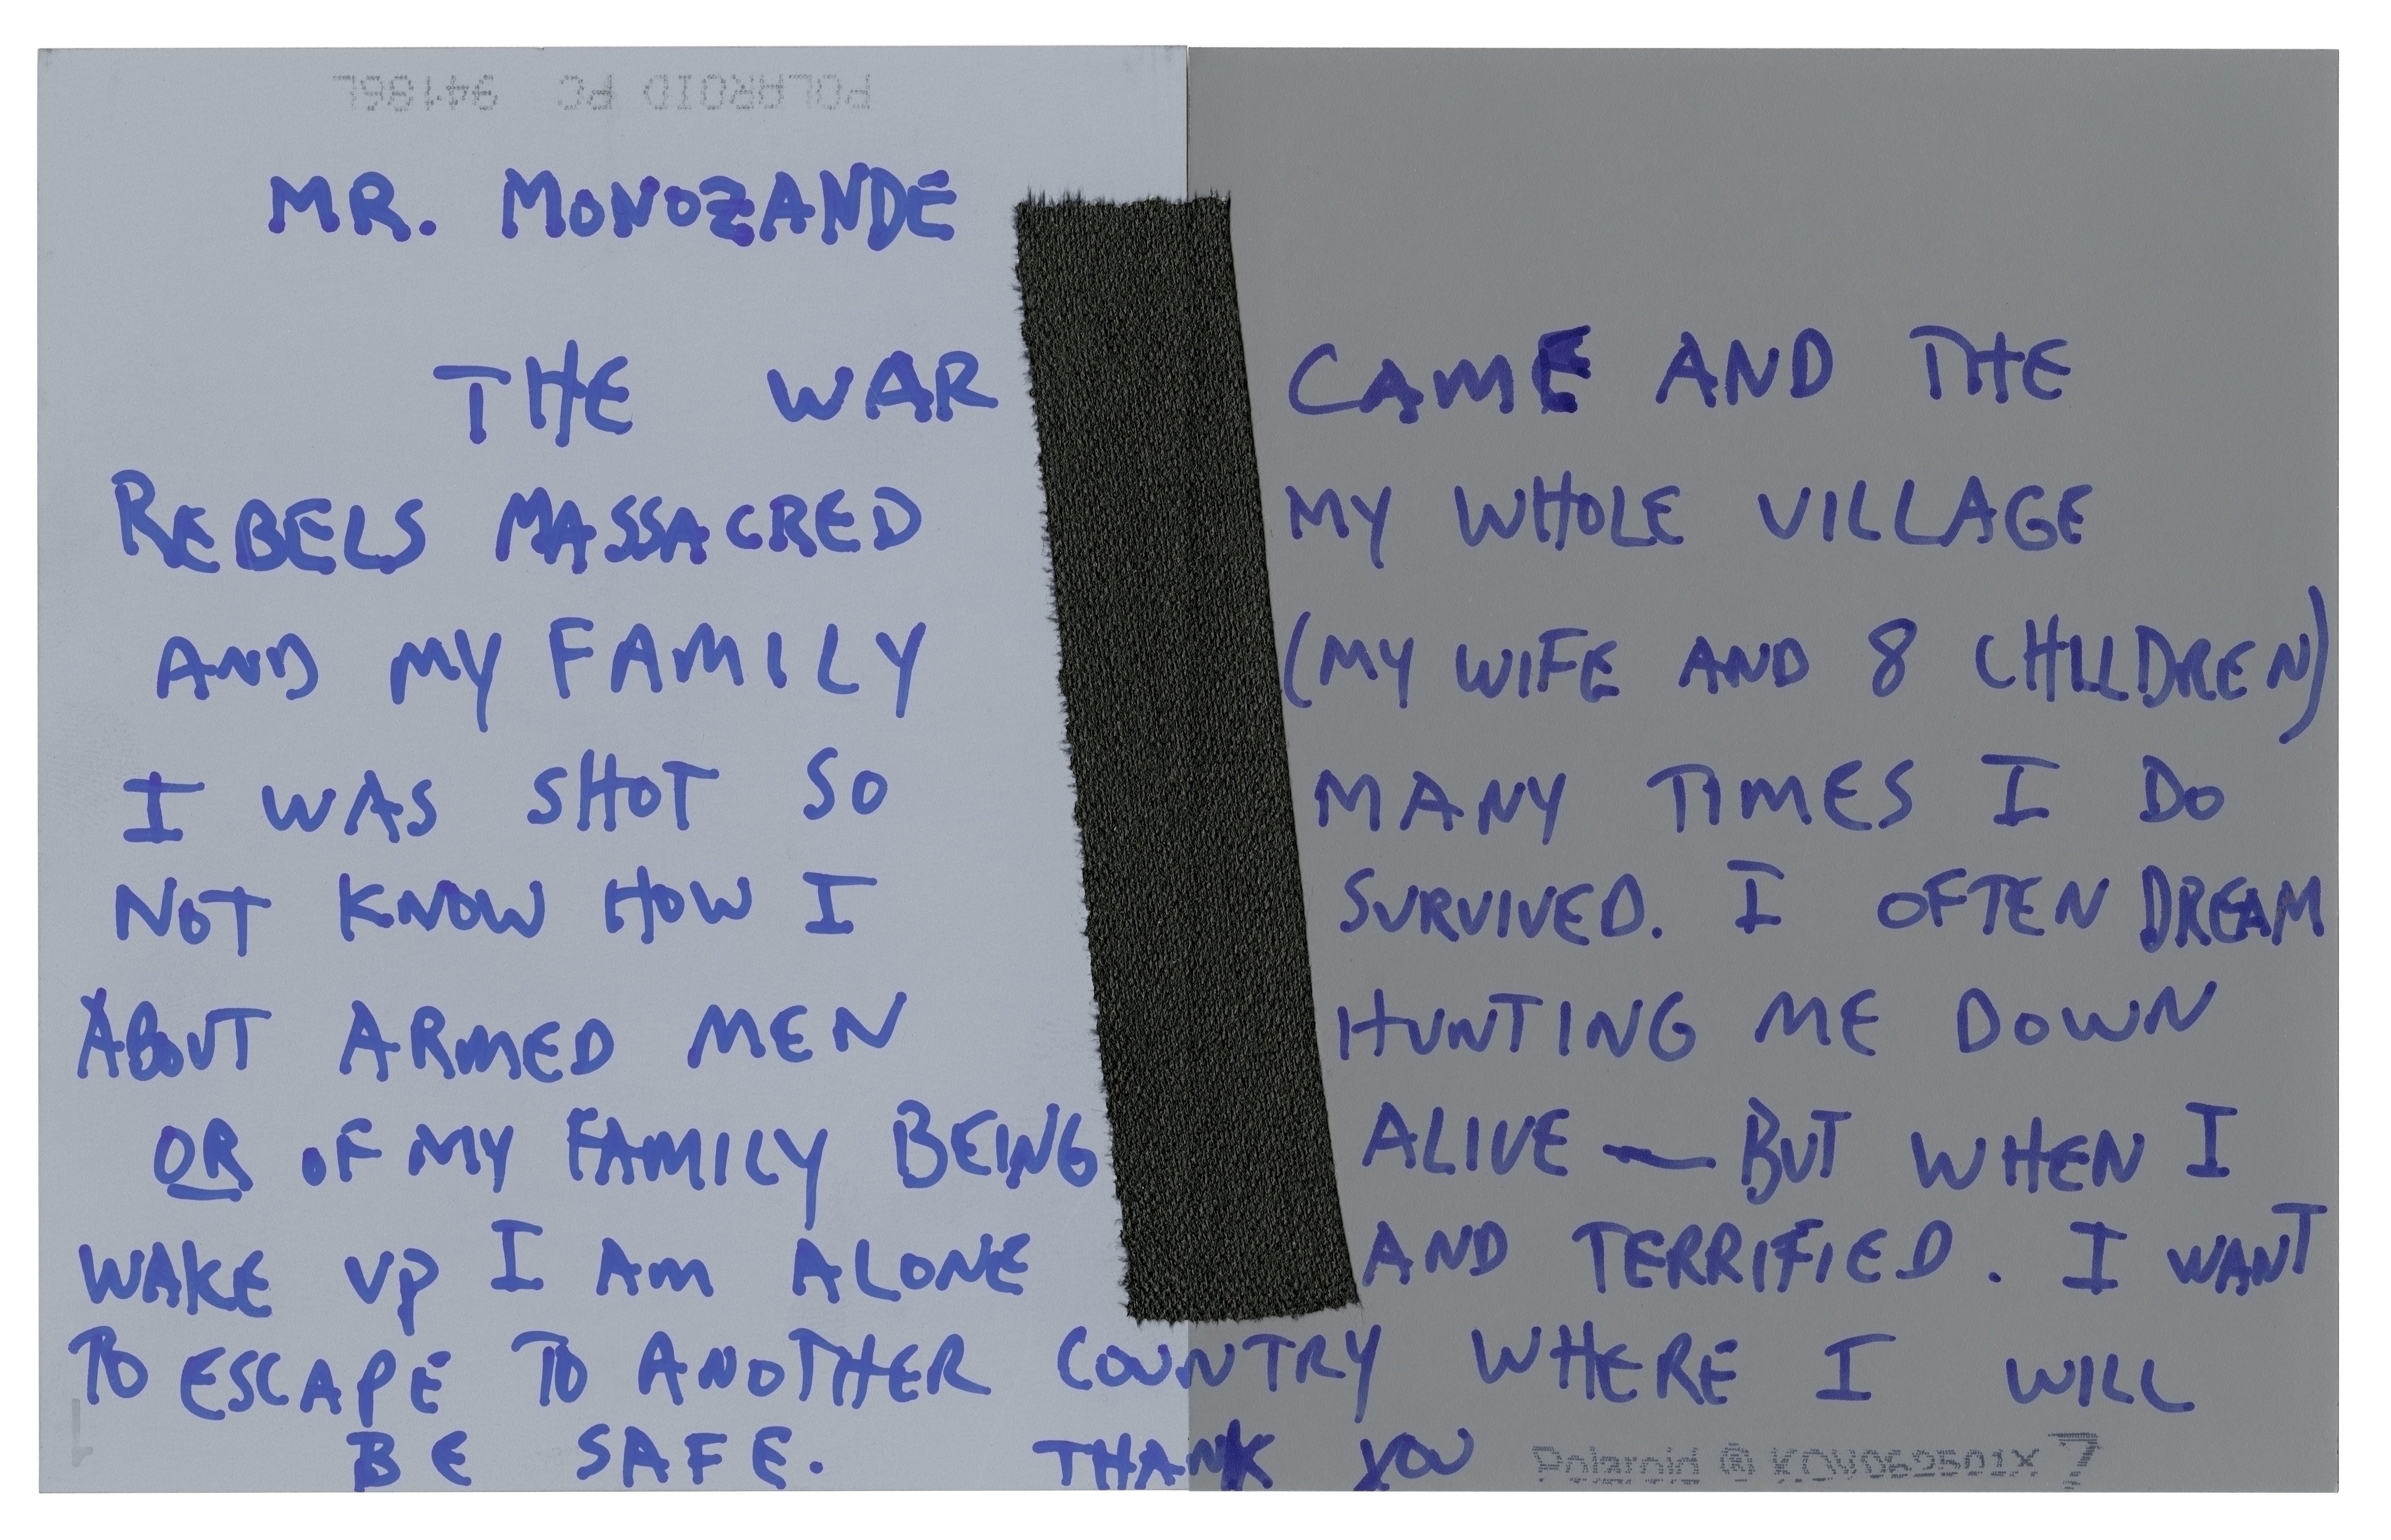 POLAROID PC 94196L
MR. MONOZANDE
THE WAR CAME AND THE
REBELS MASSACRED MY WHOLE VILLAGE
AND MY FAMILY (MY WIFE AND 8 CHILDREN)
I WAS SHOT SO MANY TIMES I DO
NOT KNOW HOW I SURVIVED. I OFTEN DREAM
ABOUT ARMED MEN HUNTING ME DOWN
OR OF MY FAMILY BEING ALIVE — BUT WHEN I
WAKE UP I AM ALONE AND TERRIFIED. I WANT
TO ESCAPE TO ANOTHER COUNTRY WHERE I WILL
BE SAFE. THANK YOU
1
Polaroid ®
7